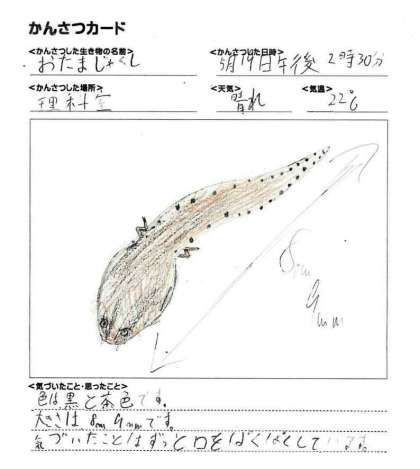 かんさつカード
<かんさつした生き物の名前>
おたまじゃくし
<かんさつした日時>
5月19日午後 2時30分
<かんさつした場所>
理科室
<天気>
晴れ
<気温>
22℃
8cm
9mm
<気づいたこと・思ったこと>
色は黒と茶色です。
大きさは 8cm 9mmです。
気づいたことはずっと口をぱくぱくして います。